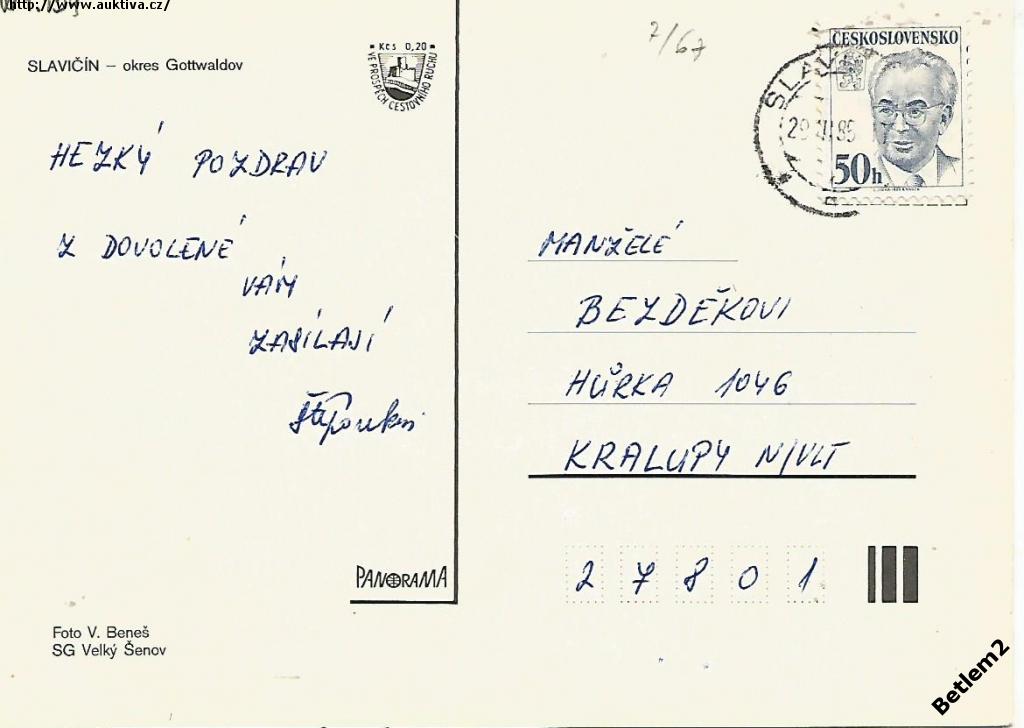 http://www.auktiva.cz/
SLAVIČÍN – okres Gottwaldov
Kčs 0,20
VE PROSPĚCH CESTOVNÍHO RUCHU
7/67
ČESKOSLOVENSKO
50h
HEZKÝ POZDRAV
Z DOVOLENÉ
VÁM
ZASÍLAJÍ
MANŽELÉ
BEZDĚKOVI
HŮRKA 1046
KRALUPY N/VLT
27801
PANORAMA
Foto V. Beneš
SG Velký Šenov
Betlem2